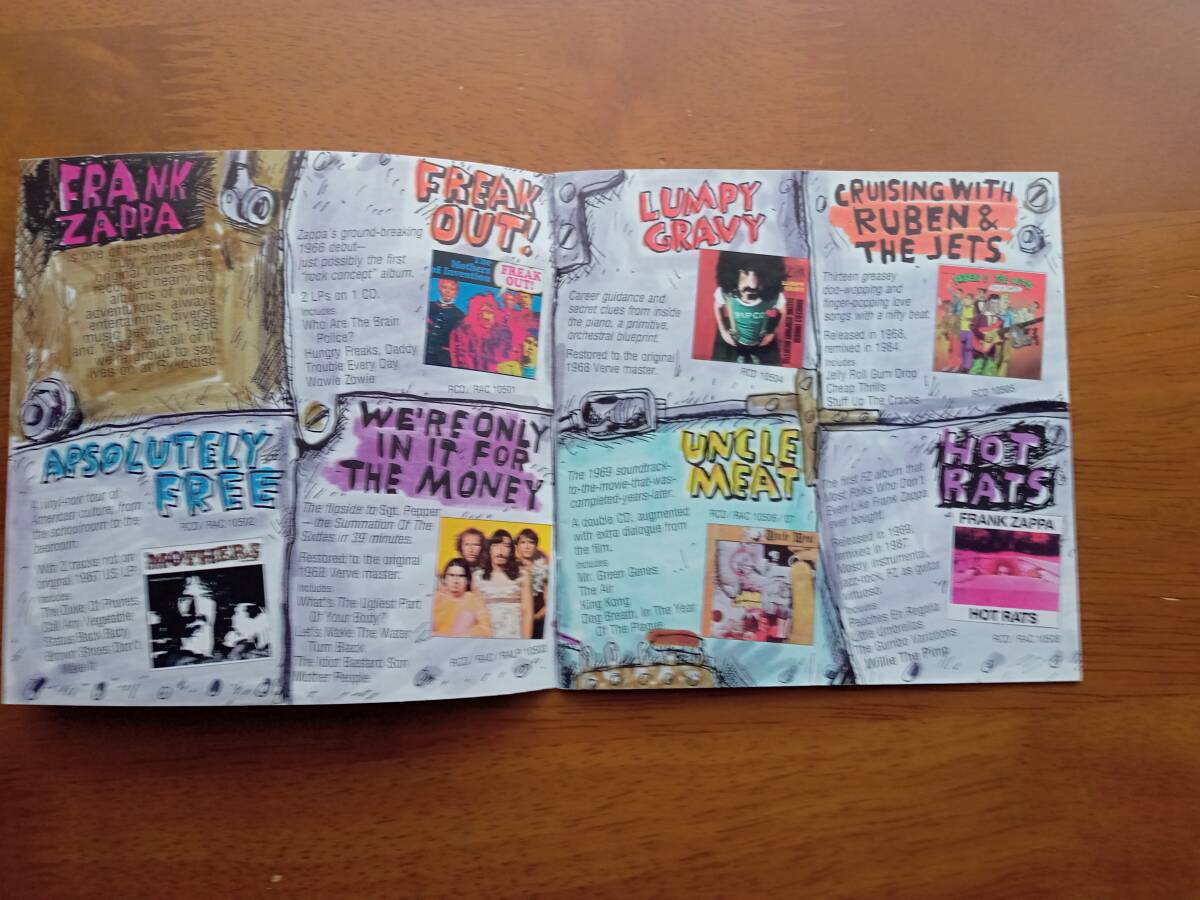 FRANK
ZAPPA
is one of this century's
most unique and
original voices. He
recorded nearly 60
albums of wildly
adventurous, always
entertaining, diverse
music between 1966
and
we're proud to say,
lives on at Rykodisc
FREAK
OUT!
Zappa's ground-breaking
1966 debut—
just possibly the first
"rock concept" album.
2 LPs on 1 CD.
Includes
Who Are The Brain
Police?
Hungry Freaks, Daddy
Trouble Every Day
Wowie Zowie
The
Mothers
of Invention
FREAK
OUT!
RCD / RAC 10501
LUMPY
GRAVY
Career guidance and
secret clues from inside
the piano, a primitive,
orchestral blueprint.
Restored to the original
1968 Verve master.
RCD 10504
CRUISING WITH
RUBEN &
THE JETS
Thirteen greasy
doo-wopping and
finger-popping love
songs with a nifty beat.
Released in 1968,
remixed in 1984.
Includes
Jelly Roll Gum Drop
Cheap Thrills
Stuff Up The Cracks
RCD 10505
ABSOLUTELY
FREE
A vinyl-noir tour of
American culture, from
the schoolroom to the
bedroom.
With 2 tracks not on
original 1967 US LP.
Includes
The Duke Of Prunes
Call Any Vegetable
Status Back Baby
Brown Shoes Don't
Make It
RCD / RAC 10502
MOTHERS
WE'RE ONLY
IN IT FOR
THE MONEY
The flipside to Sgt. Pepper
—the Summation Of The
Sixties in 39 minutes.
Restored to the original
1968 Verve master.
Includes
What's The Ugliest Part
Of Your Body?
Let's Make The Water
Turn Black
The Idiot Bastard Son
Mother People
RCD / RAC / RALP 10503
UNCLE
MEAT
The 1969 soundtrack-
to-the-movie-that-was-
completed-years-later.
A double CD, augmented
with extra dialogue from
the film.
Includes
Mr. Green Genes
The Air
King Kong
Dog Breath, In The Year
Of The Plague
RCD / RAC 10506 / 07
Uncle Meat
HOT
RATS
The first FZ album that
Most Folks Who Don't
Even Like Frank Zappa
ever bought.
Released in 1969,
remixed in 1987.
Mostly instrumental,
jazz-rock, FZ as guitar
virtuoso.
Includes
Peaches En Regalia
Little Umbrellas
The Gumbo Variations
Willie The Pimp
FRANK ZAPPA
HOT RATS
RCD / RAC 10508